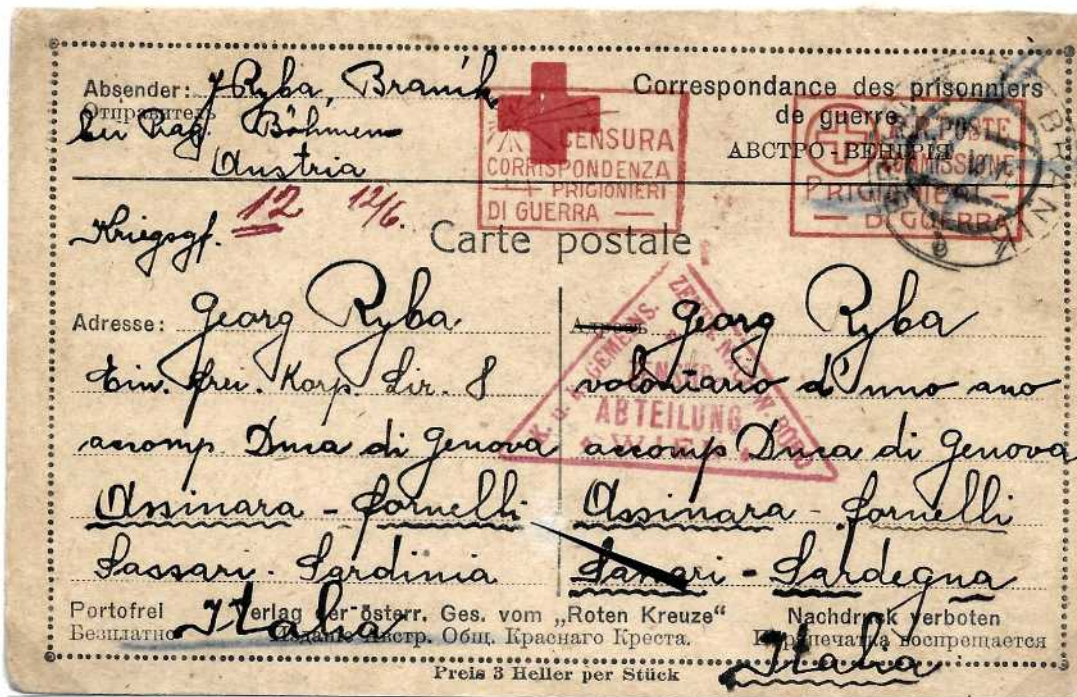 Absender: J Ryba, Braník
Отправитель
bei Prag. Böhmen
Austria
Correspondance des prisonniers
de guerre
АВСТРО-ВЕНГРІЯ
CENSURA
CORRISPONDENZA
PRIGIONIERI
DI GUERRA
R.R. POSTE
COMMISSIONE
PRIGIONIERI
DI GUERRA
BRANÍK
Kriegsgf. 12 12/6.
Carte postale
K. u. K. GEMEINS. ZENTR. NACHW. BÜRO
ZENSUR
ABTEILUNG
WIEN
Adresse: Georg Ryba
Ein. frei. Korp. Lir. 8
accomp Duca di Genova
Assinara - Fornelli
Sassari - Sardinia
Italia
Адресъ Georg Ryba
volontario d'unno ano
accomp Duca di Genova
Assinara - Fornelli
Sassari - Sardegna
Italia
Portofrei Verlag der österr. Ges. vom „Roten Kreuze“ Nachdruck verboten
Безплатно Изданіе Австр. Общ. Краснаго Креста. Перепечатка воспрещается
Preis 3 Heller per Stück